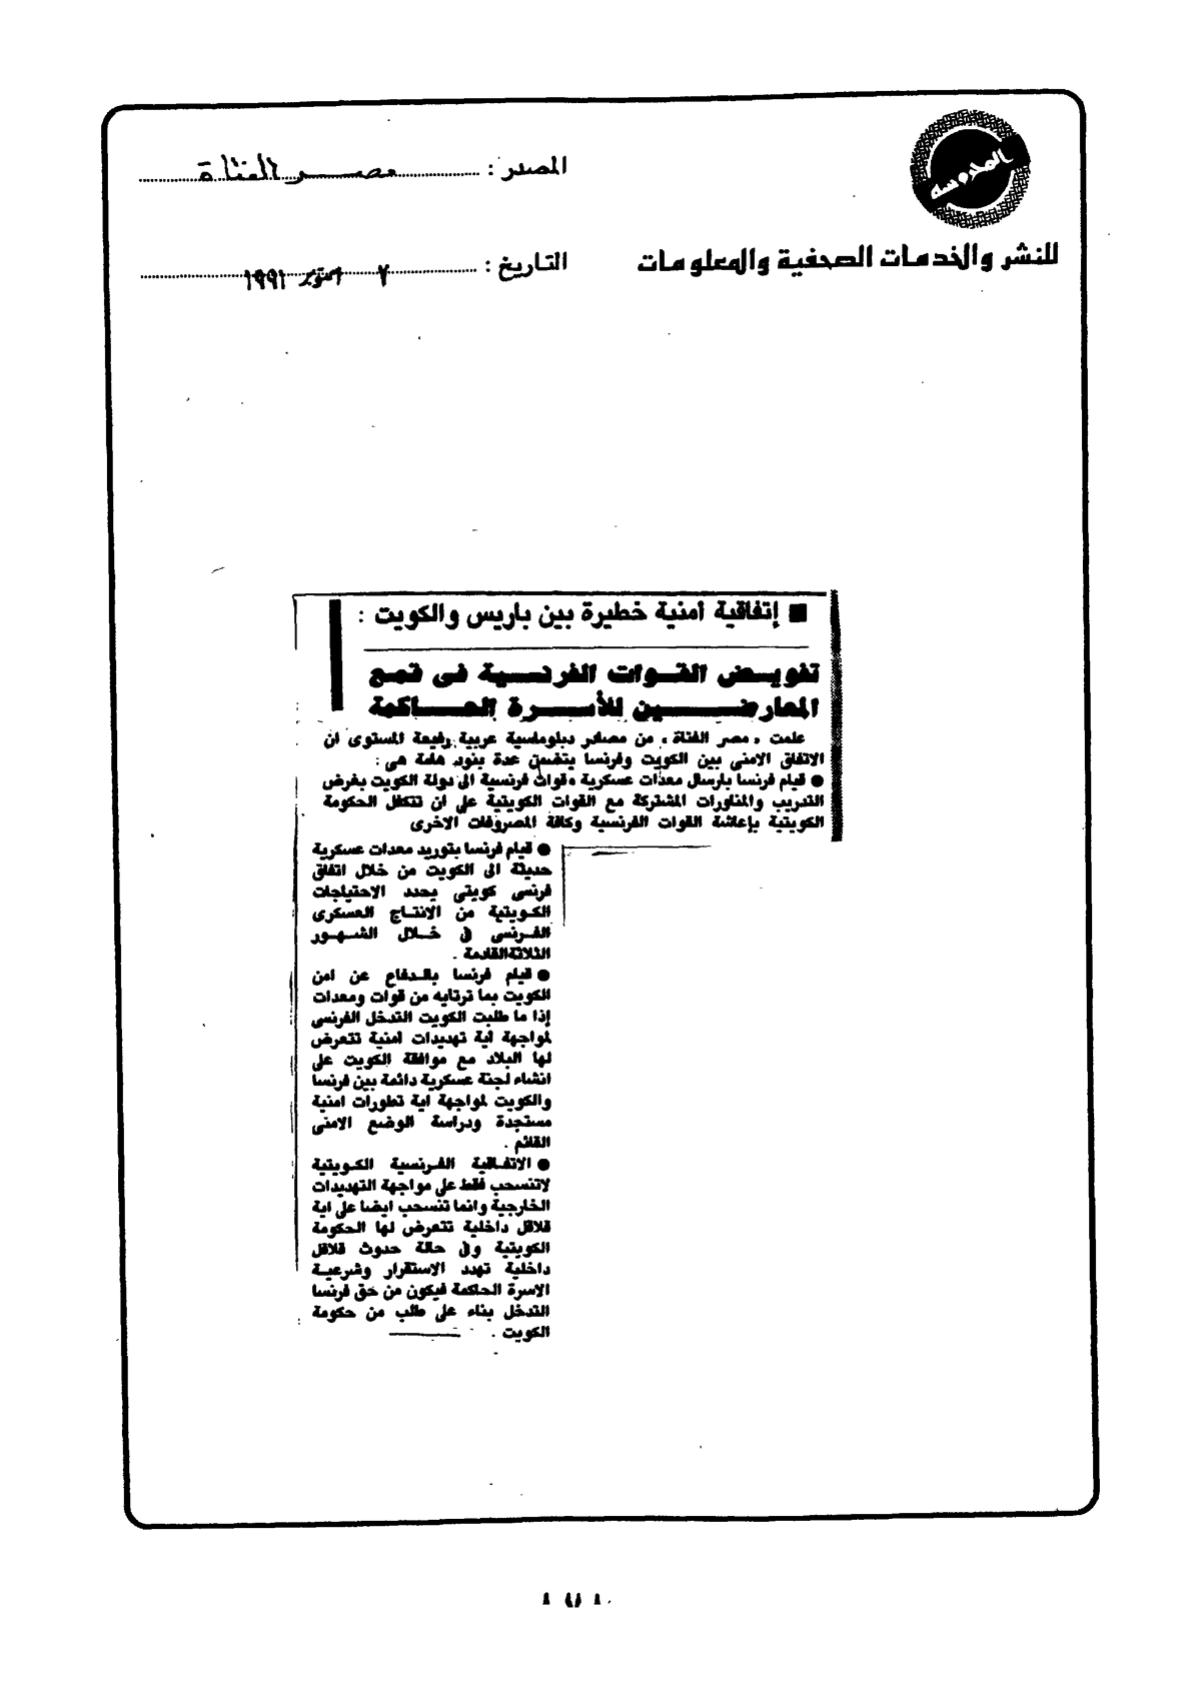 المحروسة
المصدر : مصر الفتاة
للنشر والخدمات الصحفية والمعلومات
التاريخ : ٧ اكتوبر ١٩٩١
■ إتفاقية أمنية خطيرة بين باريس والكويت :
تفويض القوات الفرنسية فى قمع
المعارضين للأسرة الحاكمة
علمت « مصر الفتاة » من مصادر دبلوماسية عربية رفيعة المستوى ان
الاتفاق الامنى بين الكويت وفرنسا يتضمن عدة بنود هامة هى :
● قيام فرنسا بارسال معدات عسكرية وقوات فرنسية الى دولة الكويت بغرض
التدريب والمناورات المشتركة مع القوات الكويتية على ان تتكفل الحكومة
الكويتية بإعاشة القوات الفرنسية وكافة المصروفات الاخرى
● قيام فرنسا بتوريد معدات عسكرية
حديثة الى الكويت من خلال اتفاق
فرنسى كويتى يحدد الاحتياجات
الكويتية من الانتاج العسكرى
الفرنسى فى خلال الشهور
الثلاثة القادمة .
● قيام فرنسا بالدفاع عن امن
الكويت بما ترتايه من قوات ومعدات
إذا ما طلبت الكويت التدخل الفرنسى
لمواجهة اية تهديدات أمنية تتعرض
لها البلاد مع موافقة الكويت على
انشاء لجنة عسكرية دائمة بين فرنسا
والكويت لمواجهة اية تطورات امنية
مستجدة ودراسة الوضع الامنى
القائم .
● الاتفاقية الفرنسية الكويتية
لاتنسحب فقط على مواجهة التهديدات
الخارجية وانما تنسحب ايضا على اية
قلاقل داخلية تتعرض لها الحكومة
الكويتية وفى حالة حدوث قلاقل
داخلية تهدد الاستقرار وشرعية
الاسرة الحاكمة فيكون من حق فرنسا
التدخل بناء على طلب من حكومة
الكويت .